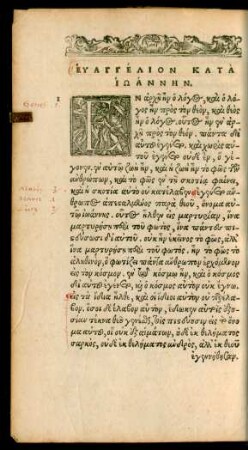 ΕΥΑΓΓΕΛΙΟΝ ΚΑΤΑ
ΙΩΑΝΝΗΝ.
1
ΕΝ ἀρχῇ ἦν ὁ λόγος, καὶ ὁ λό-
γος ἦν πρὸς τὸν θεὸν, καὶ θεὸς
ἦν ὁ λόγος. οὗτος ἦν ἐν ἀρ-
χῇ πρὸς τὸν θεόν. πάντα δι'
αὐτοῦ ἐγένετο, καὶ χωρὶς αὐ-
τοῦ ἐγένετο οὐδὲ ἓν, ὃ γέγο-
νεν. ἐν αὐτῷ ζωὴ ἦν, καὶ ἡ ζωὴ ἦν τὸ φῶς τῶν
ἀνθρώπων, καὶ τὸ φῶς ἐν τῇ σκοτίᾳ φαίνει,
καὶ ἡ σκοτία αὐτὸ οὐ κατέλαβεν. ἐγένετο ἄν-
θρωπος ἀπεσταλμένος παρὰ θεοῦ, ὄνομα αὐ-
τῷ ἰωάννης. οὗτος ἦλθεν εἰς μαρτυρίαν, ἵνα
μαρτυρήσῃ περὶ τοῦ φωτός, ἵνα πάντες πι-
στεύσωσι δι' αὐτοῦ. οὐκ ἦν ἐκεῖνος τὸ φῶς, ἀλλ'
ἵνα μαρτυρήσῃ περὶ τοῦ φωτός. ἦν τὸ φῶς τὸ
ἀληθινὸν, ὃ φωτίζει πάντα ἄνθρωπον ἐρχόμενον
εἰς τὸν κόσμον. ἐν τῷ κόσμῳ ἦν, καὶ ὁ κόσμος
δι' αὐτοῦ ἐγένετο, καὶ ὁ κόσμος αὐτὸν οὐκ ἔγνω.
εἰς τὰ ἴδια ἦλθε, καὶ οἱ ἴδιοι αὐτὸν οὐ παρέλα-
βον. ὅσοι δὲ ἔλαβον αὐτὸν, ἔδωκεν αὐτοῖς ἐξου-
σίαν τέκνα θεοῦ γενέσθαι, τοῖς πιστεύουσιν εἰς τὸ ὄνο-
μα αὐτοῦ, οἳ οὐκ ἐξ αἱμάτων, οὐδὲ ἐκ θελήματος
σαρκὸς, οὐδὲ ἐκ θελήματος ἀνδρὸς, ἀλλ' ἐκ θεοῦ
ἐγεννήθησαν.